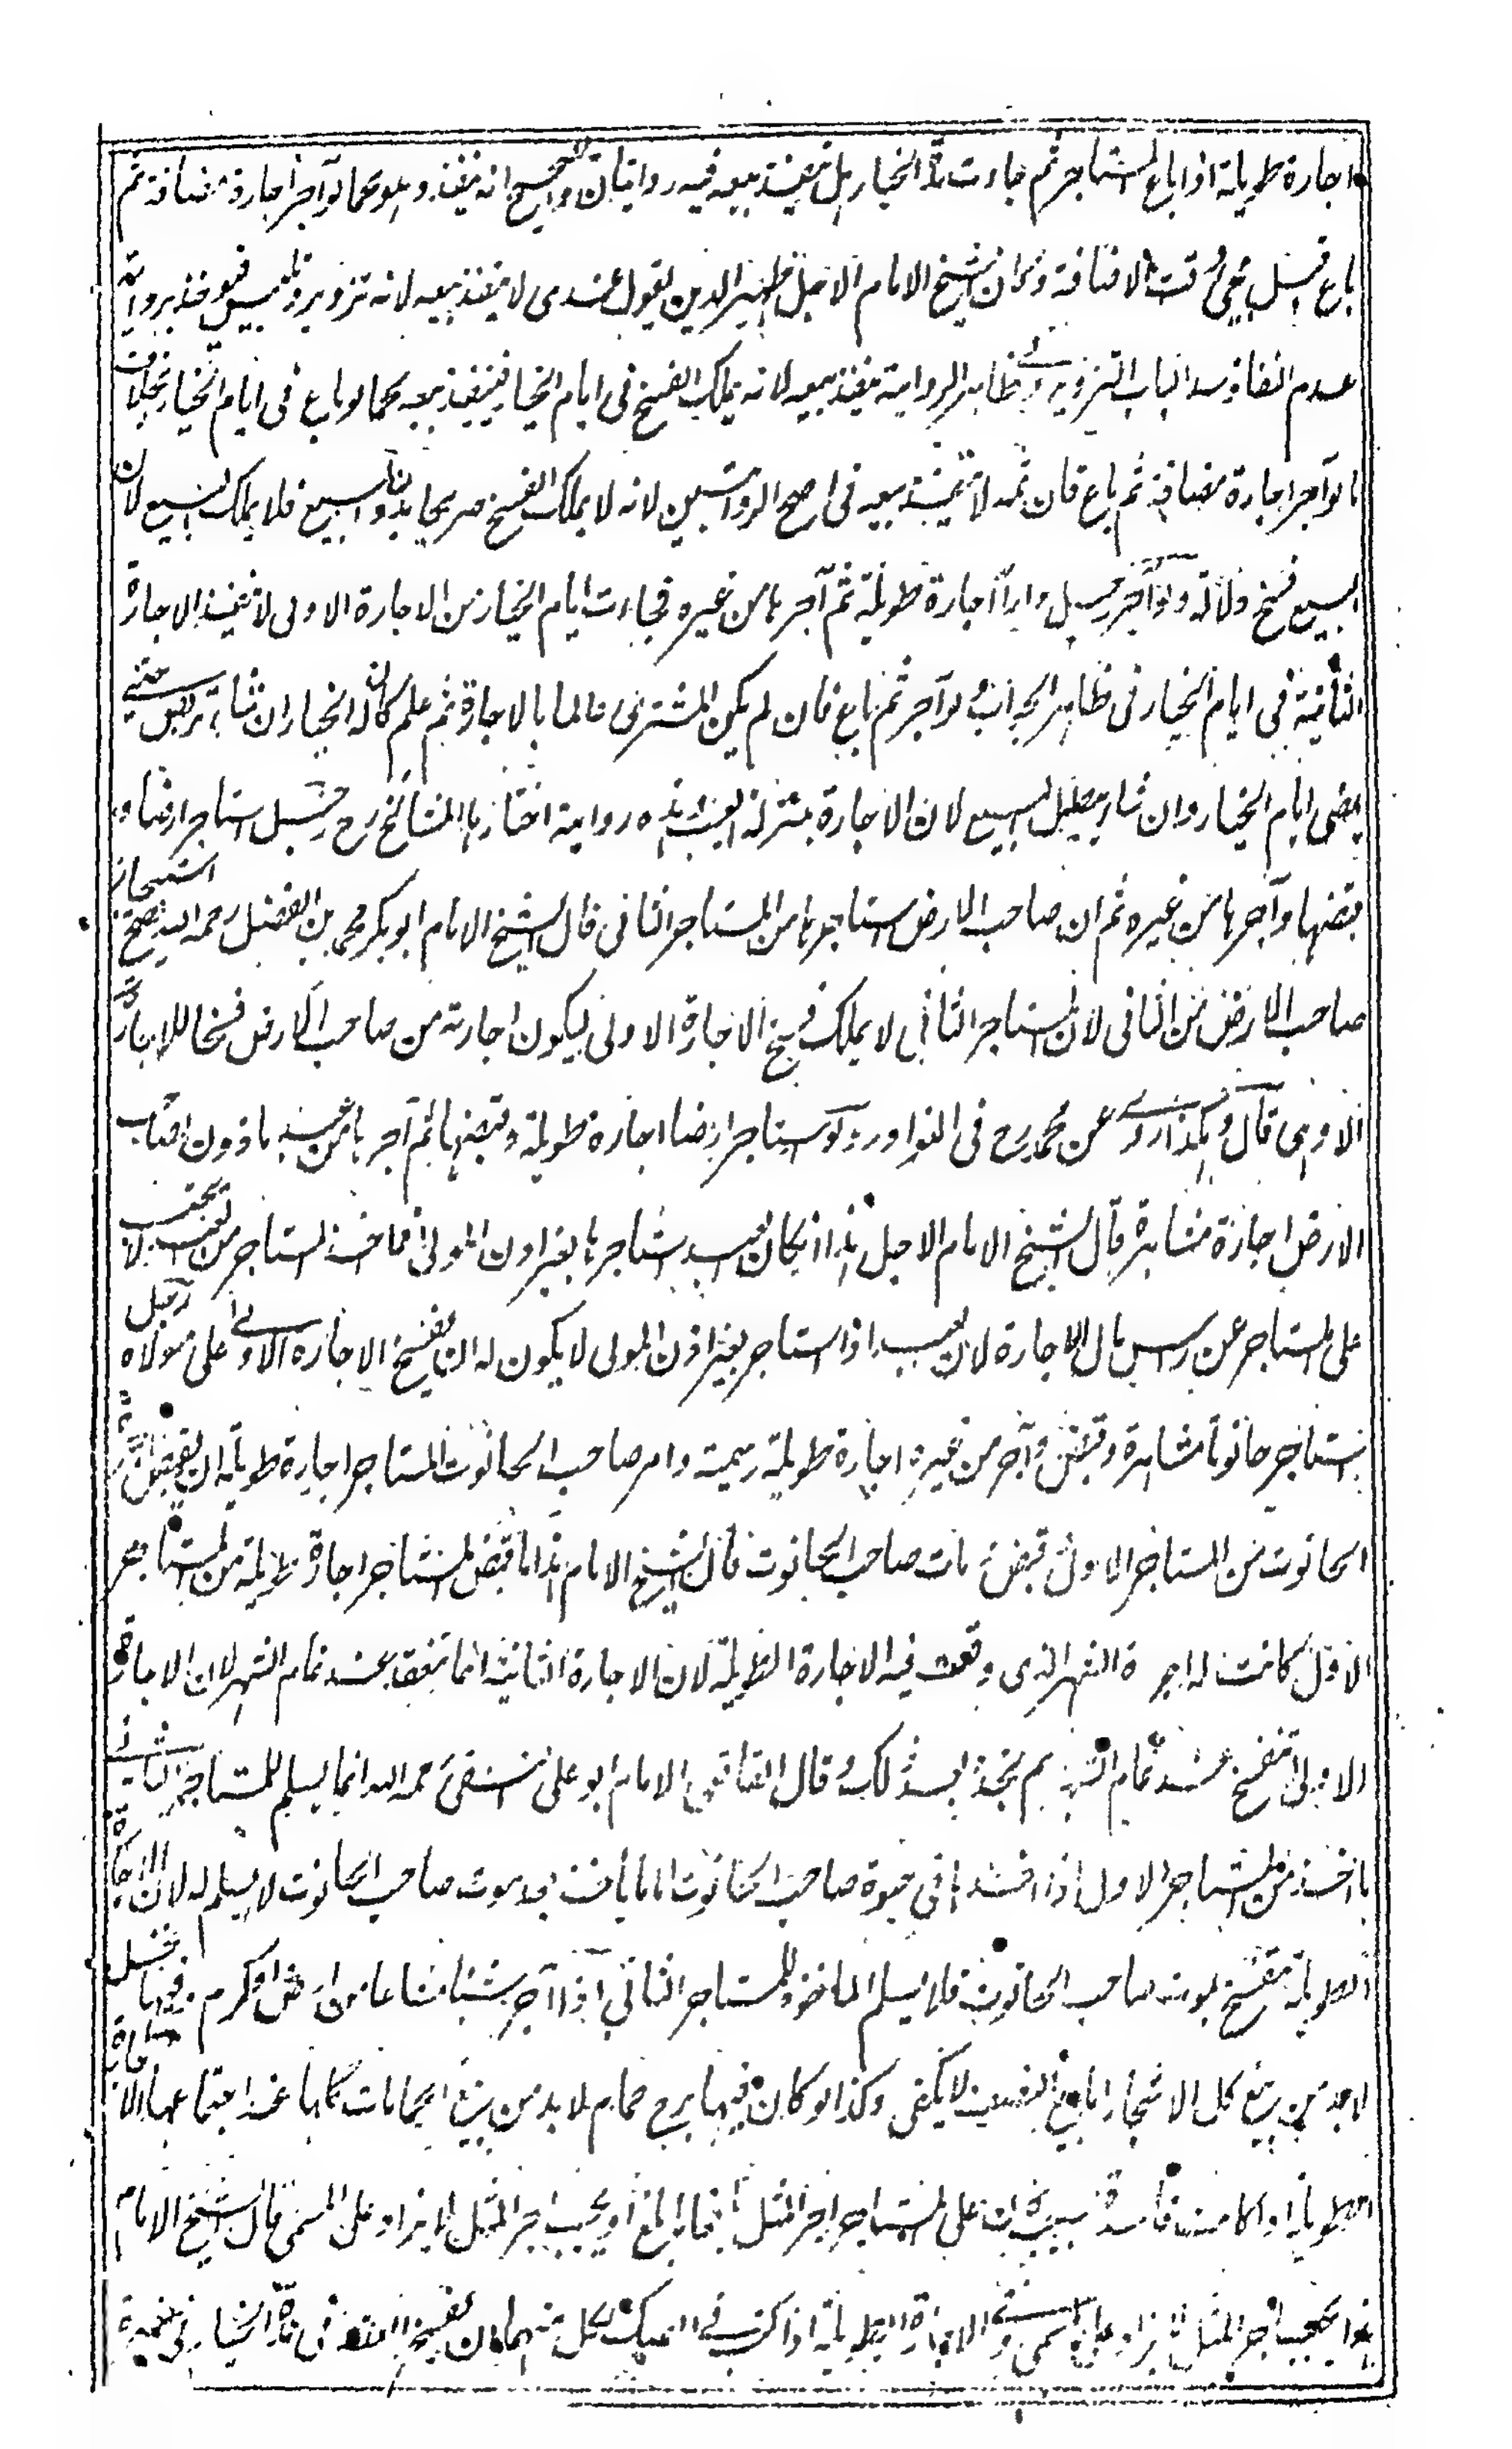 اجارة طويلة اذا باع المستاجر ثم جاءت مدة الخيار هل ينفذ بيعه فيه روايتان والصحيح انه ينفذ وهو كما لو آجر اجارة مضافة ثم
باع قبل مجئ وقت الاضافة وكان الشيخ الامام الاجل ظهير الدين يقول عندى لا ينفذ بيعه لانه تزوير وتلبيس فيؤخذ برواية
عدم النفاذ سدا لباب التزوير وفى ظاهر الرواية ينفذ بيعه لانه يملك الفسخ فى ايام الخيار فينفذ بيعه كما لو باع فى ايام الخيار بخلاف
ما لو آجر اجارة مضافة ثم باع فان ثمه لا ينفذ بيعه فى اصح الروايتين لانه لا يملك الفسخ صريحا بدون البيع فلا يملك البيع لان
البيع فسخ دلالة ولو آجر رجل دارا اجارة طويلة ثم آجرها من غيره فجاءت ايام الخيار من الاجارة الاولى لا تنفذ الاجارة
الثانية فى ايام الخيار فى ظاهر الجواب ولو آجر ثم باع فان لم يكن المشترى عالما بالاجارة ثم علم كان له الخيار ان شاء تربص حتى
يمضى ايام الخيار وان شاء يبطل البيع لان الاجارة بمنزلة العيب هذه رواية اختارها المشائخ رح رجل استاجر ارضا و
قبضها وآجرها من غيره ثم ان صاحب الارض استاجرها من المستاجر الثانى قال الشيخ الامام ابو بكر محمد بن الفضل رحمه الله يصح استيجار
صاحب الارض من الثانى لان المستاجر الثانى لا يملك فسخ الاجارة الاولى ليكون اجارته من صاحب الارض فسخا للاجارة
الاولى قال وهكذا روى عن محمد رح فى النوادر ولو استاجر ارضا اجارة طويلة وقبضها ثم آجرها من عبد ماذون لصاحب
الارض اجارة مشاهرة قال الشيخ الامام الاجل هذا ان كان العبد استاجرها بغير اذن المولى فما اخذ المستاجر من العبد لا يحتسب
على المستاجر عن راس مال الاجارة لان العبد اذا استاجر بغير اذن المولى لا يكون له ان يفسخ الاجارة الاولى على مولاه رجل
استاجر حانوتا مشاهرة وقبض وآجر من غيره اجارة طويلة رسمية وامر صاحب الحانوت المستاجر اجارة طويلة ان يقبض
الحانوت من المستاجر الاول فقبض ثم مات صاحب الحانوت قال الشيخ الامام هذا ما قبض المستاجر اجارة طويلة من المستاجر
الاول كانت له اجرة الشهر الذى وقعت فيه الاجارة الطويلة لان الاجارة الثانية انما تنعقد عند تمام الشهر لان الاجارة
الاولى تنفسخ عند تمام الشهر ثم يتجدد بعد ذلك وقال القاضى الامام ابو على النسفى رحمه الله انما يسلم للمستاجر الثانى
ما اخذ من المستاجر الاول اذا اخذها فى حيوة صاحب الحانوت اما ما يأخذ بعد موت صاحب الحانوت لا يسلم له لان الاجارة
الطويلة تنفسخ بموت صاحب الحانوت فلا يسلم الماخوذ للمستاجر الثانى اذا آجر شيئا مشاعا من ارض او كرم وفيها نخيل
لا بد من بيع كل الاشجار اما بيع النصف لا يكفى وكذا لو كان فيها برج حمام لا بد من بيع الحمامات كلها عند اجتماعها الاجارة
الطويلة اذا كانت فاسدة يجب على المستاجر اجر المثل بالغا ما بلغ او يجب اجر المثل لا يزاد على المسمى قال الشيخ الامام
هذا يجب اجر المثل لا يزاد على المسمى وفى الاجارة الطويلة اذا كتب فى الصك لكل منهما ان يفسخ العقد فى مدة الخيار فى غيبة